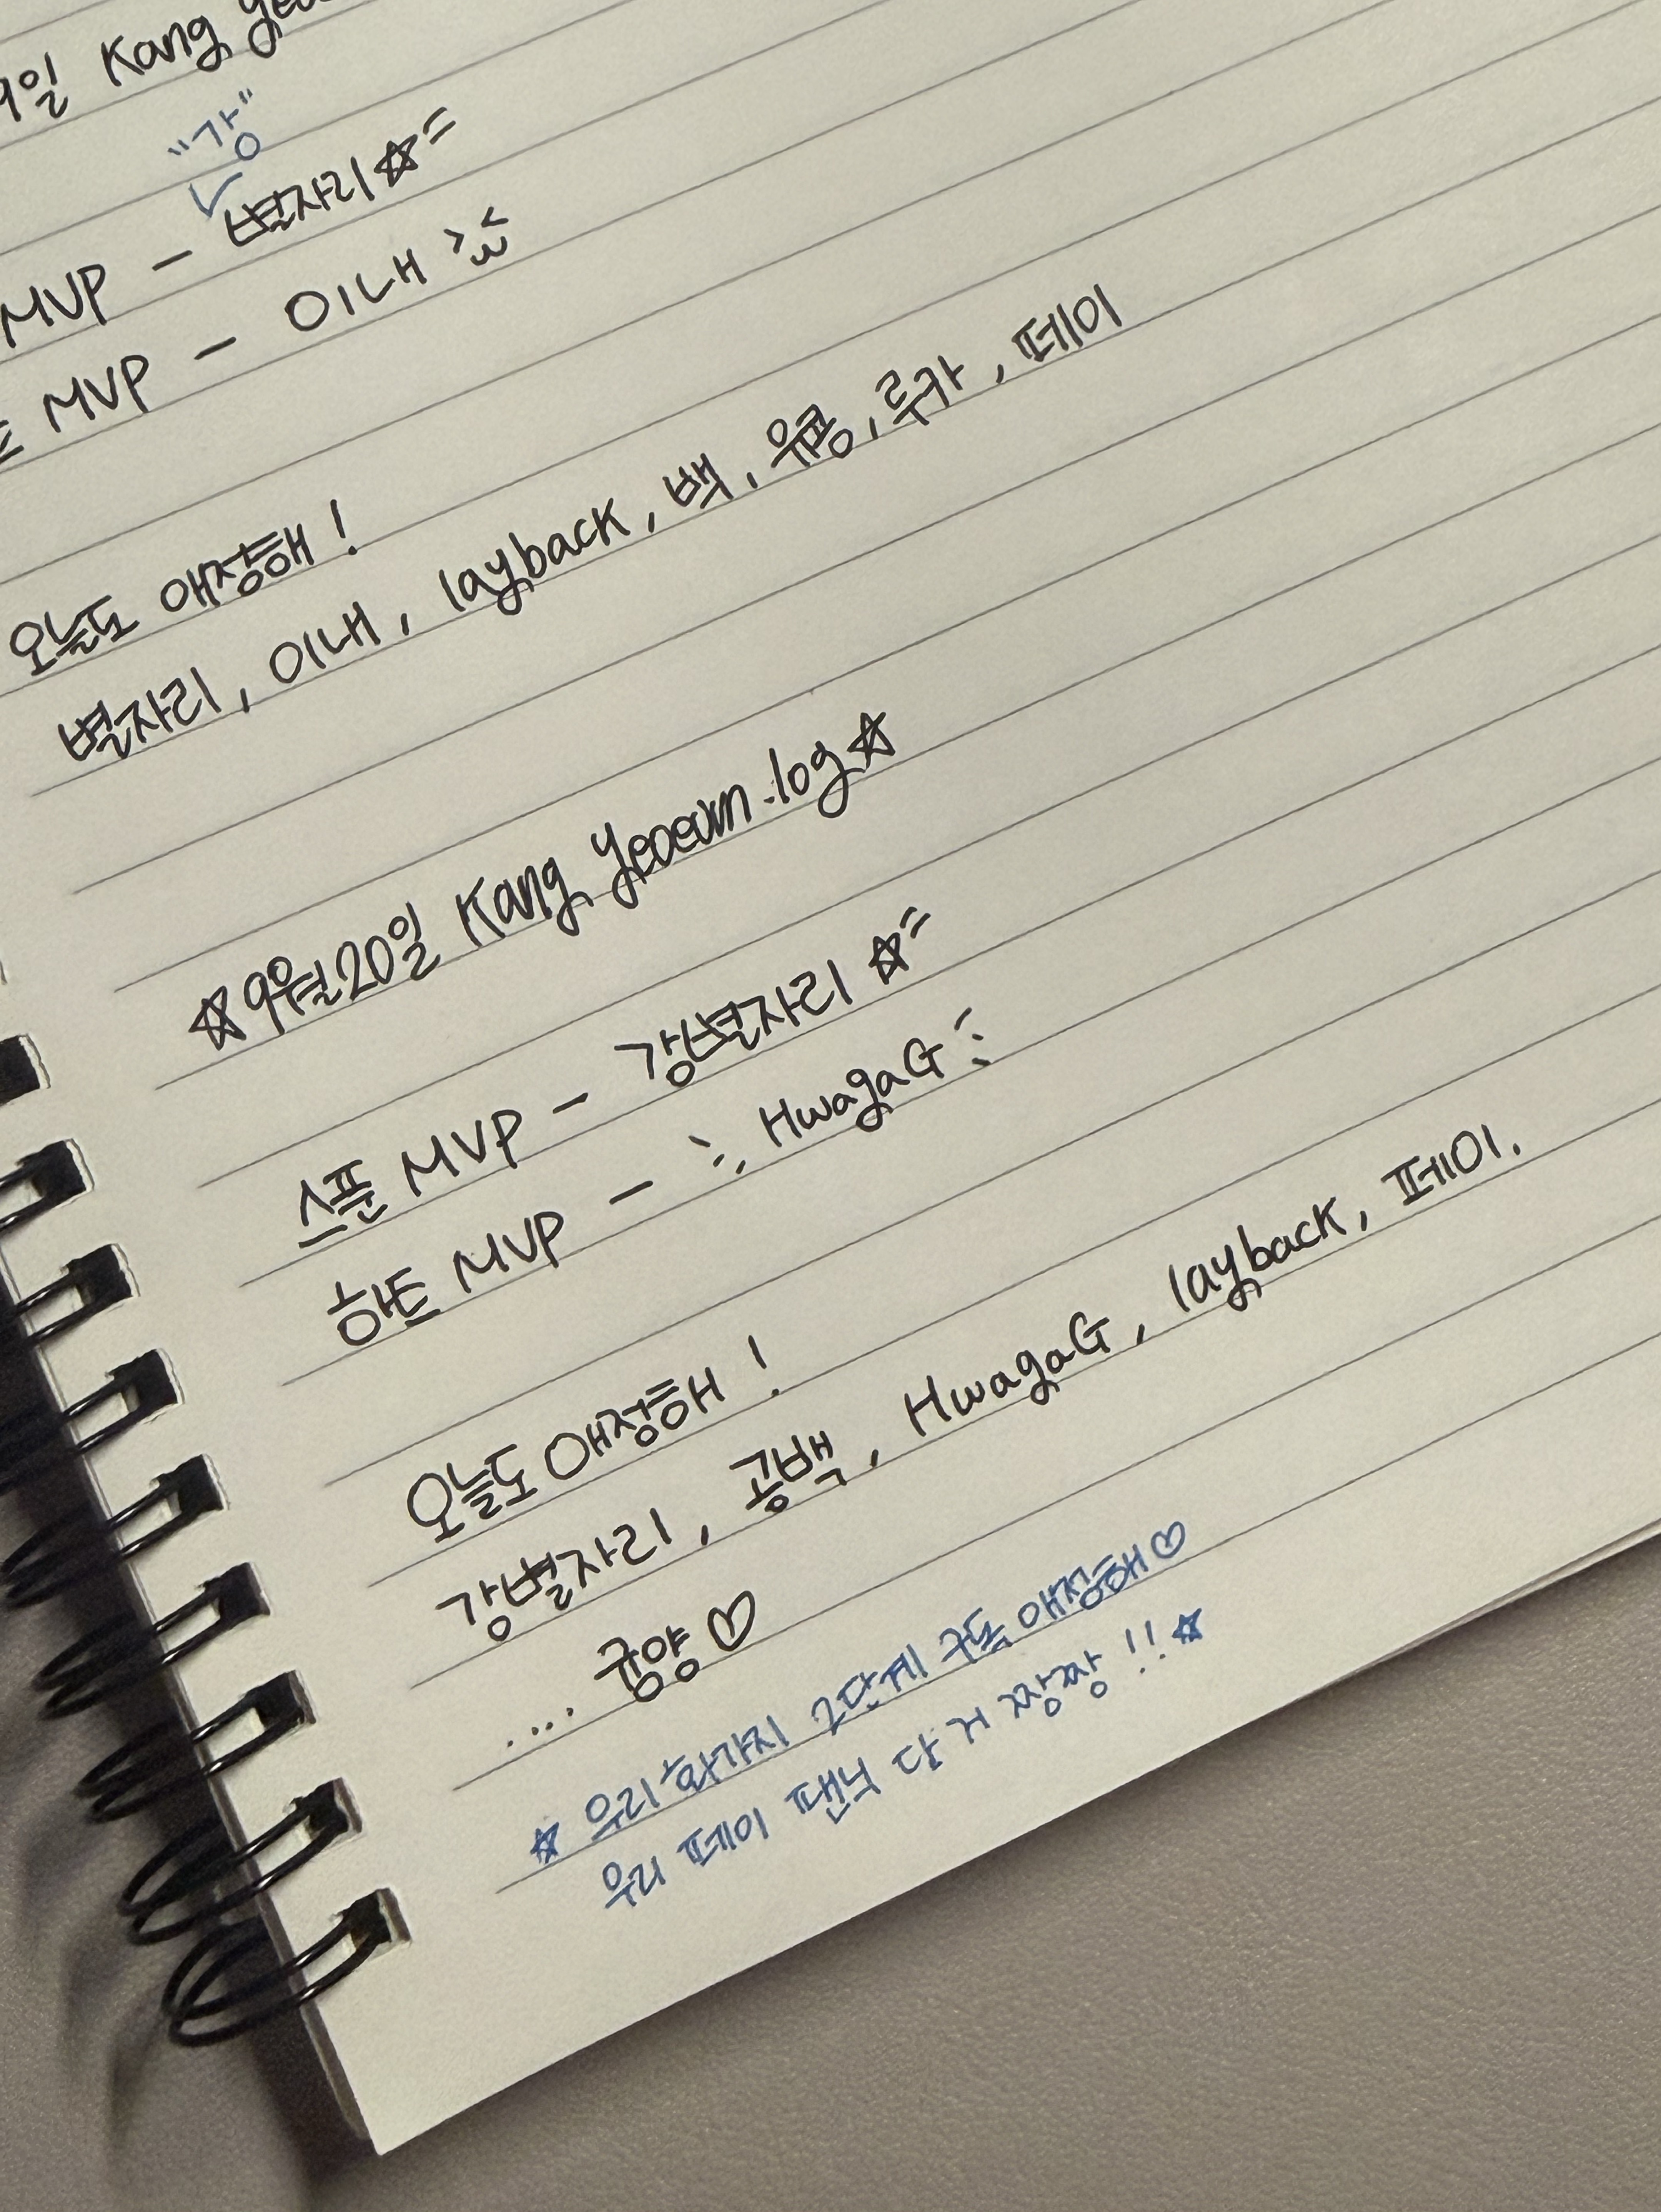 9일 Kang
"강"
MVP - 별자리☆
MVP - 이내
오늘도 애정해!
별자리, 이내, layback, 백, 유콩, 루카, 페이
☆9월20일 Kang Yeoeum.log☆
스푼 MVP - 강별자리 ☆
하트 MVP - HwagaG
오늘도 애정해!
강별자리, 공백, HwagaG, layback, 페이.
.... 귱양♡
☆ 우리 화가지 2단계 구독 애정해♡
우리 페이 팬닉 단 거 짱짱!!☆